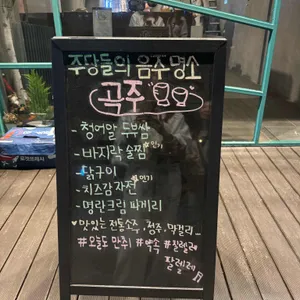 주당들의 음주명소
곡주
- 청어알 두부쌈
- 바지락 술찜 *인기
- 닭구이
- 치즈감자전 *인기
- 명란크림 파게리
♥맛있는 전통소주, 청주, 막걸리 _
#오늘도 만취! #약속 #찰랠레